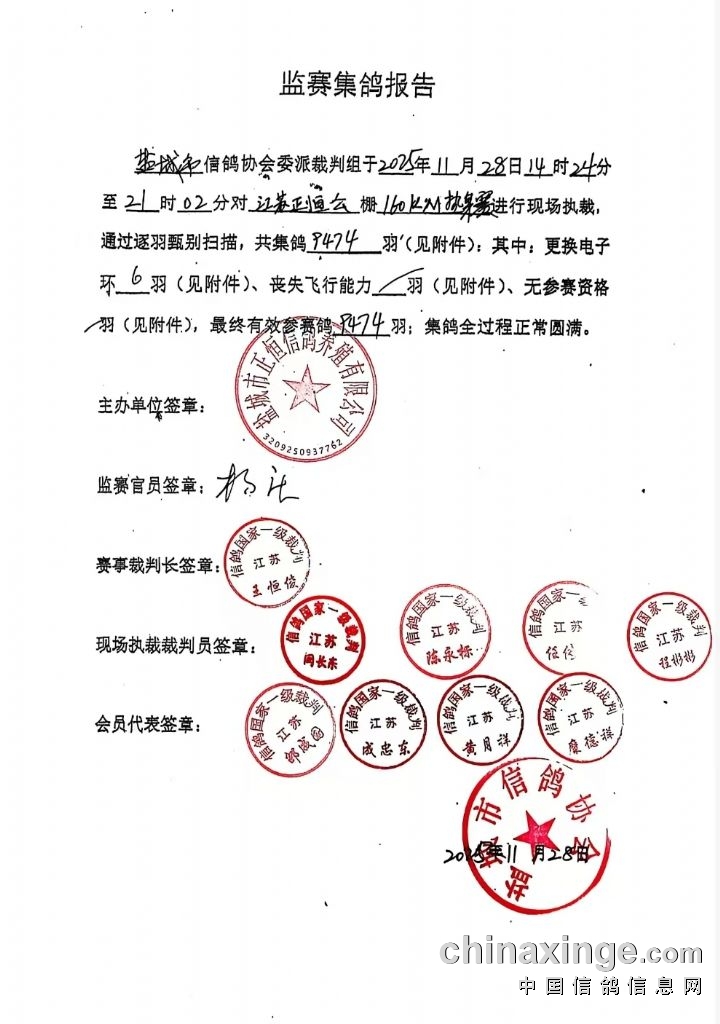 监赛集鸽报告
盐城市信鸽协会委派裁判组于2025年11月28日14时24分
至21时02分对江苏正恒公棚160KM热身赛进行现场执裁,
通过逐羽甄别扫描,共集鸽9474羽(见附件):其中:更换电子
环6羽(见附件)、丧失飞行能力/羽(见附件)、无参赛资格
/羽(见附件),最终有效参赛鸽9474羽;集鸽全过程正常圆满。
主办单位签章:
盐城市正恒信鸽养殖有限公司
3209250937762
监赛官员签章:
赛事裁判长签章:
信鸽国家一级裁判
江苏
王恒俊
现场执裁裁判员签章:
信鸽国家一级裁判
江苏
闫长东
信鸽国家一级裁判
江苏
陈永标
信鸽国家一级
江苏
任
信鸽国家一级裁判
江苏
程彬彬
会员代表签章:
信鸽国家一级裁判
江苏
信鸽国家一级裁判
江苏
成忠东
信鸽国家一级裁判
江苏
黄月祥
信鸽国家一级裁判
江苏
德祥
盐城市信鸽协会
2025年11月28日
chinaxinge.com
中国信鸽信息网